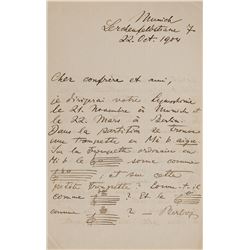 Munich
22 Oct. 1904
Cher confrère et ami,
je dirigerai votre
le 21 Novembre à Munich et
le 22 Mars à Berlin.
Dans la partition se trouve
une trompette en Mi b aigu.
Sur la trompette ordinaire en
Mi b le sonne comme
; et sur cette
petite trompette? Sonne-t-il
comme ? Et le
comme ? —